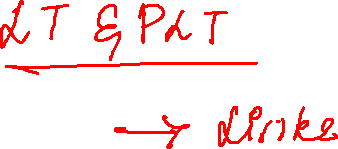 LT & PLT
→ Links